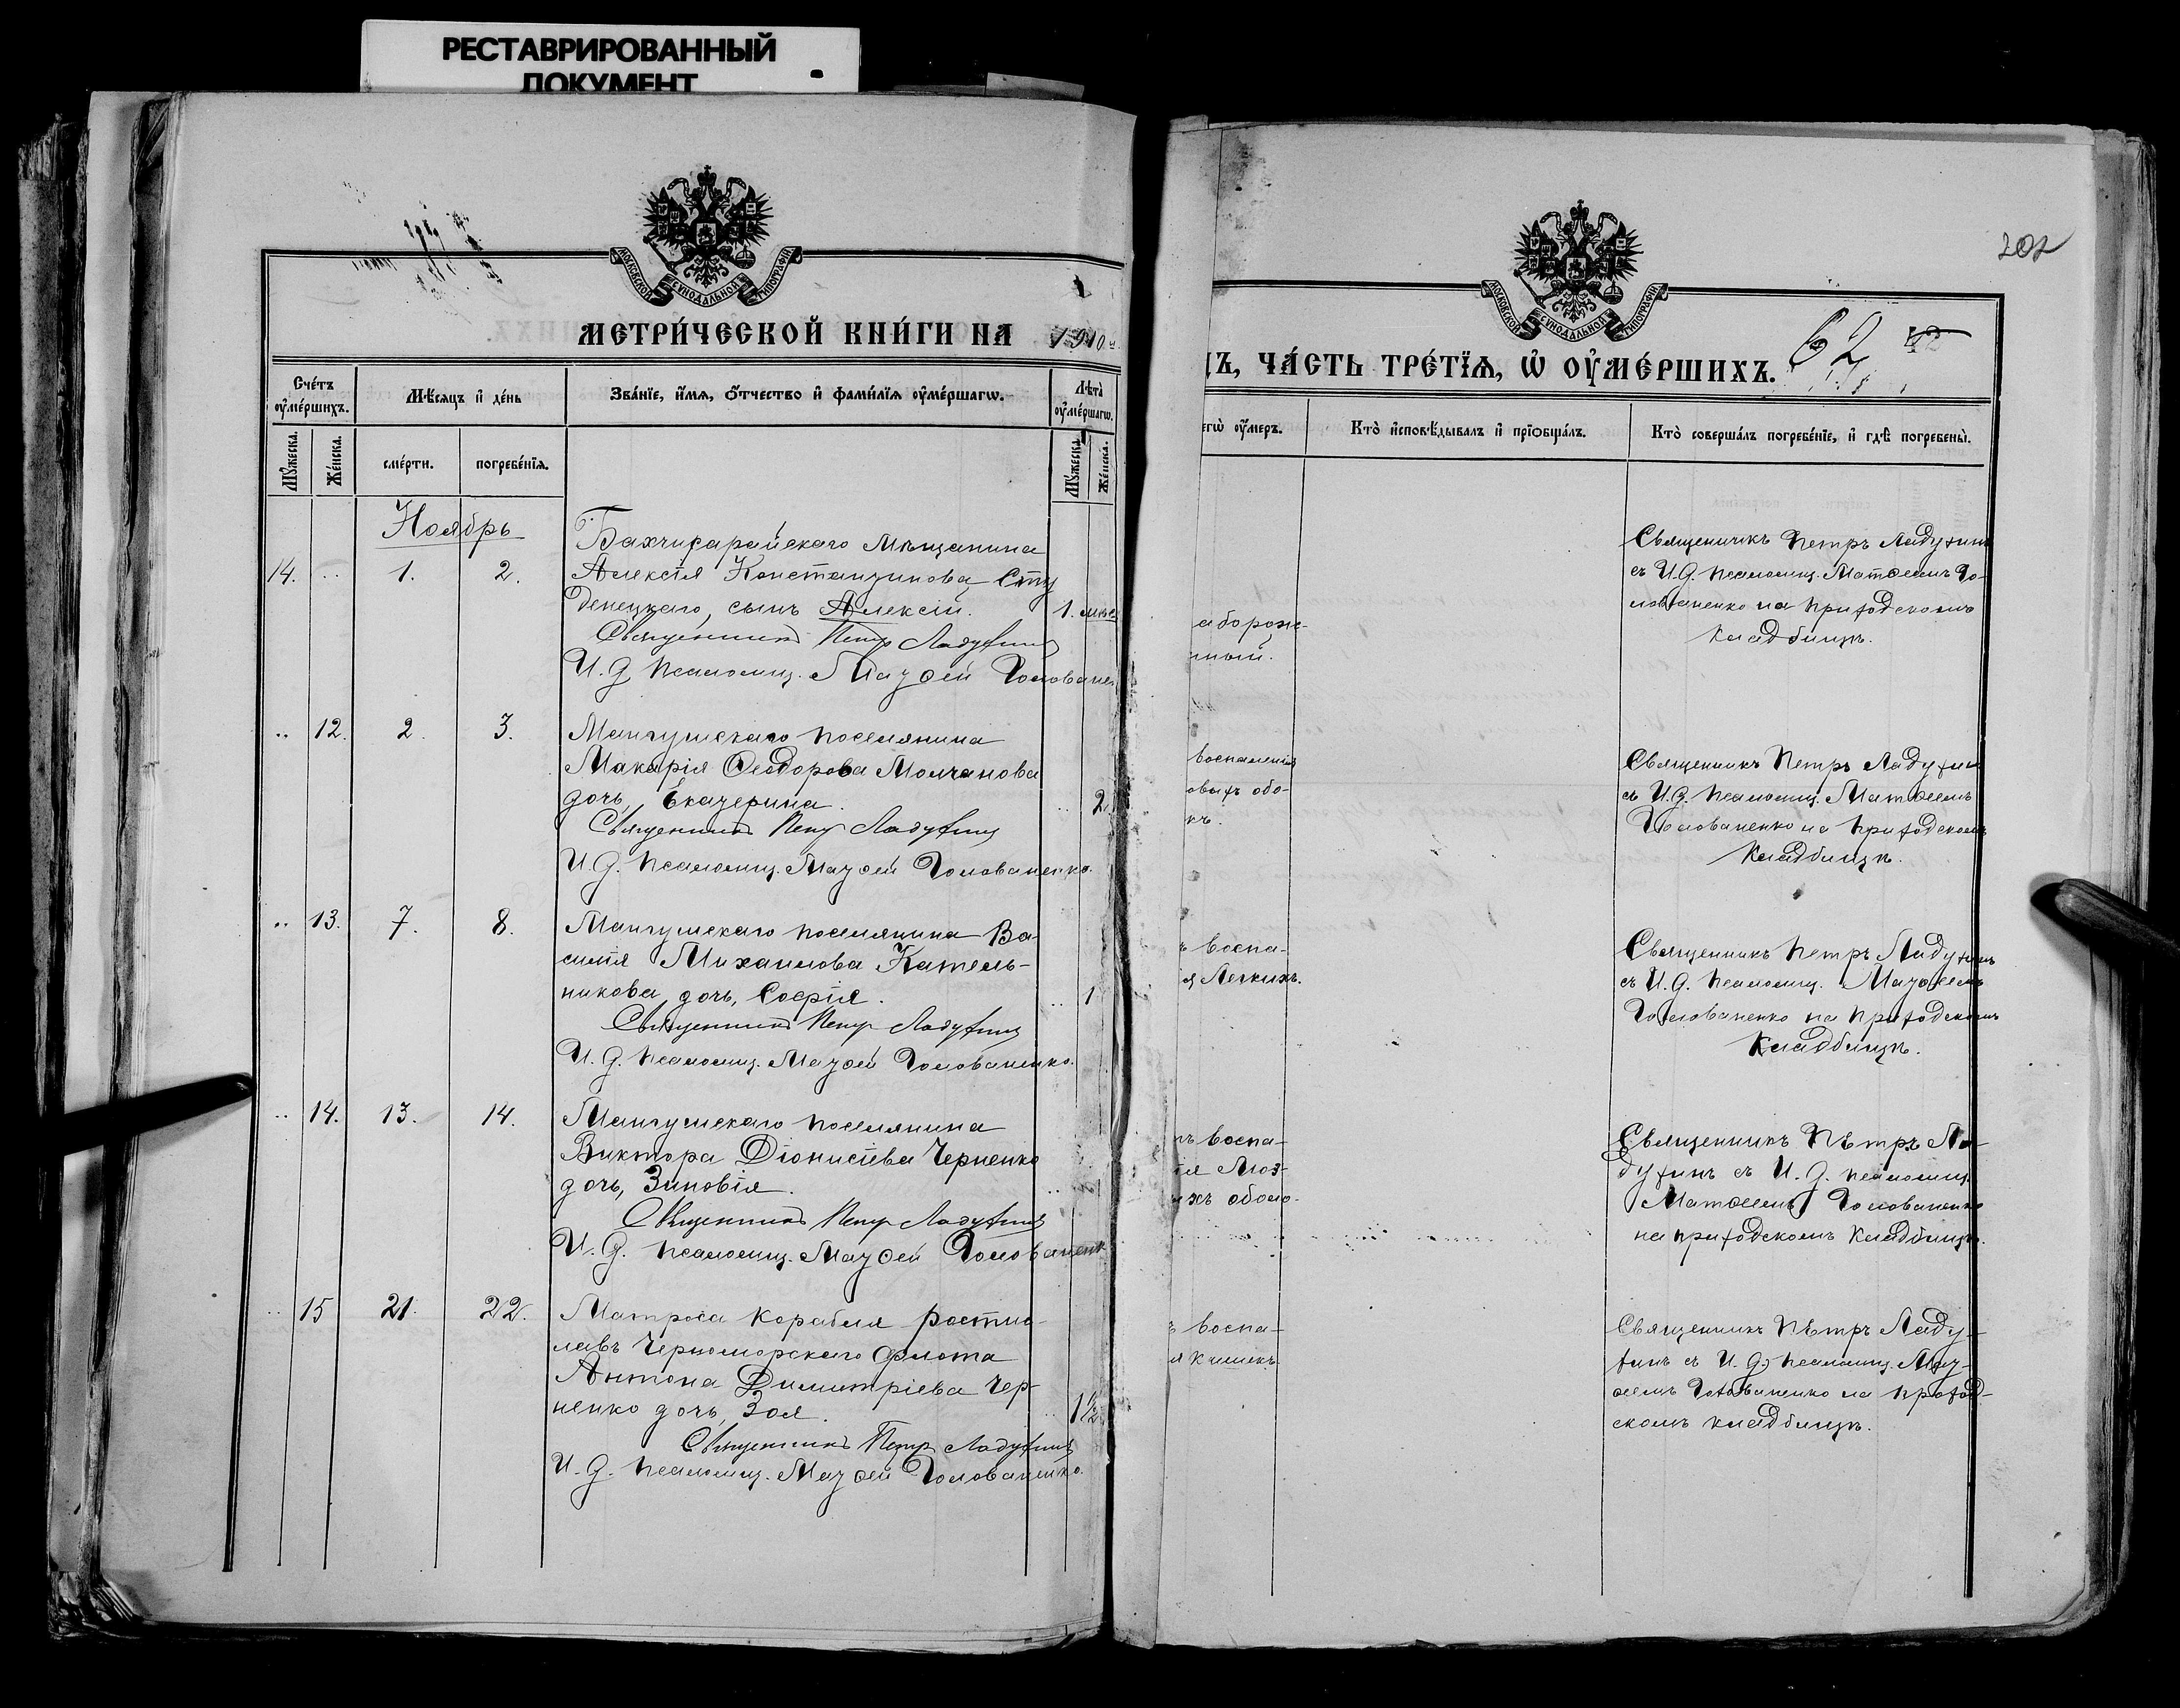 РЕСТАВРИРОВАННЫЙ
ДОКУМЕНТ
МОСКОВСКОЙ СѴНОДАЛЬНОЙ ТИПОГРАФІИ
МЕТРИ́ЧЕСКОЙ КНИ́ГИ НА 1910
Сче́тъ ᲂумершихъ.
Мѣсяцъ и де́нь
Зва́нїе, и́мѧ, ѻ́тчество и фами́лїѧ ᲂуме́ршагѡ.
Лѣта̀ ᲂуме́ршагѡ.
Мꙋжеска. Же́нска.
сме́рти. погребе́нїѧ.
Мꙋжеска. Же́нска.
Ноябрь
14. .. 1. 2.
Бахчисарайскаго мѣщанина
Алексія Константинова Сту
денецкаго, сынъ Алексій. 1. мѣс
Священникъ Петр Ладухинъ
И.д. псаломщ. Матѳей Голованен
.. 12. 2. 3.
Мангушскаго поселянина
Макарія Ѳеодорова Молчанова
дочь, Екатерина. .. 2.
Священникъ Петр Ладухинъ
И.д. псаломщ. Матѳей Голованенко.
.. 13. 7. 8.
Мангушскаго поселянина Ва-
силія Михаилова Катель-
никова, дочь, Софія. .. 1
Священникъ Петр Ладухинъ
И.д. псаломщ. Матѳей Голованенко.
.. 14. 13. 14.
Мангушскаго поселянина
Виктора Діонисіева Черненко
дочь, Зиновія.
Священникъ Петр Ладухинъ
И.д. псаломщ. Матѳей Голованенк
.. 15 21. 22.
Матроса корабля Ростис-
лавъ Черноморскаго флота
Антона Димитріева Чер-
ненко дочь, Зоя. .. 1½
Священникъ Петр Ладухинъ
И.д. псаломщ. Матѳей Голованенко.
202
МОСКОВСКОЙ СѴНОДАЛЬНОЙ ТИПОГРАФІИ
ДЪ, ЧА́СТЬ ТРЕ́ТЇѦ, Ѡ ОУМЕ́РШИХЪ. 62
егѡ̀ ᲂу́меръ.
Кто̀ исповѣ́дывалъ и прїѡбща́лъ.
Кто̀ соверша́лъ погребе́нїе, и гдѣ̀ погребены̀.
аборож-
ный.
Священникъ Петръ Ладухинъ
съ И.д. псаломщ. Матѳеемъ Го-
лованенко на приходскомъ
кладбищѣ.
воспаленія
овыхъ обо-
къ.
Священникъ Петръ Ладухин
съ И.д. псаломщ. Матѳеемъ
Голованенко на приходскомъ
кладбищѣ.
ъ воспа-
я Легкихъ.
Священникъ Петръ Ладухинъ
съ И.д. псаломщ. Матѳеемъ
Голованенко на приходскомъ
кладбищѣ.
тъ воспа-
ія Моз-
ихъ оболо-
Священникъ Пѣтръ Ла-
духинъ съ И.д. псаломщ.
Матѳеемъ Голованенко
на приходскомъ кладбищѣ.
ъ воспа-
я кишекъ
Священникъ Пѣтръ Ладу-
хинъ съ И.д. псаломщ. Мат-
ѳеемъ Голованенко на приход-
скомъ кладбищѣ.